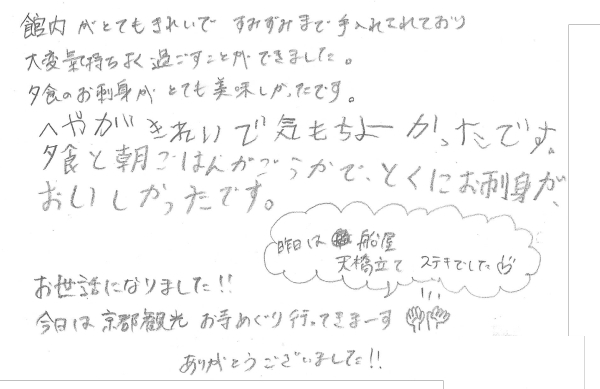 館内がとてもきれいで すみずみまで手入れされており
大変氣持ちよく過ごすことができました。
夕食のお刺身が とても美味しかったです。
へやがきれいで気もちよーかったです。
夕食と朝ごはんがごうかで、とくにお刺身が、
おいしかったです。
昨日は 船屋
天橋立て ステキでした
お世話になりました!!
今日は京都観光 お寺めぐり行ってきまーす
ありがとうございました!!